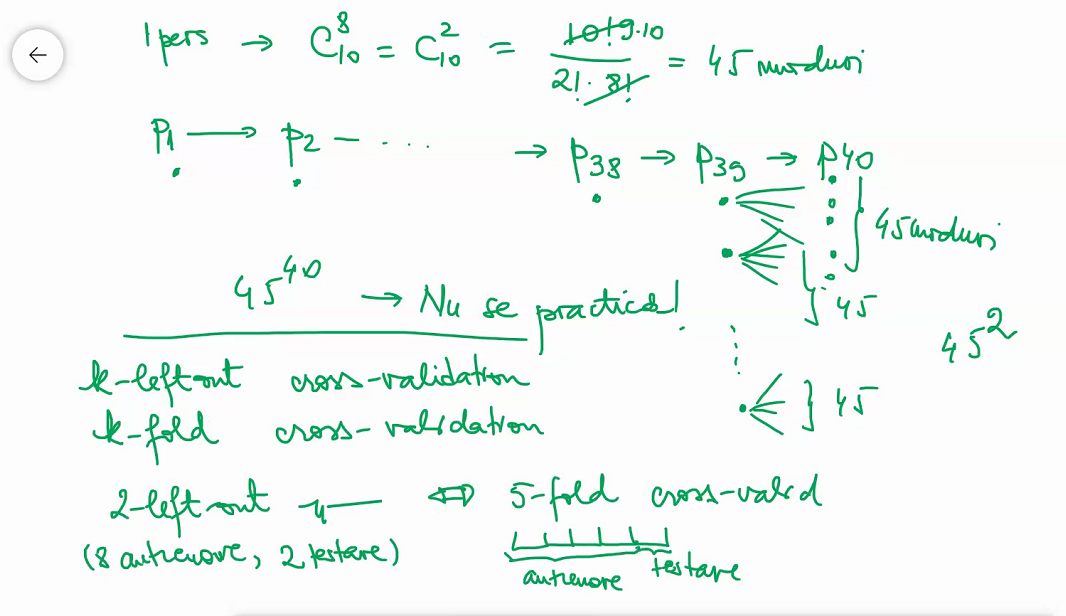 1 pers → C₁₀⁸ = C₁₀² = 10! 9·10 / 2! · 8! = 45 moduri
P1 → P2 – · · · · → P38 → P39 → P40
45 moduri
45
45²
45⁴⁰ → Nu se practică!
45
k-left-out cross-validation
k-fold cross-validation
2-left-out —〃— ⇔ 5-fold cross-valid
(8 antrenare, 2 testare)
antrenare testare